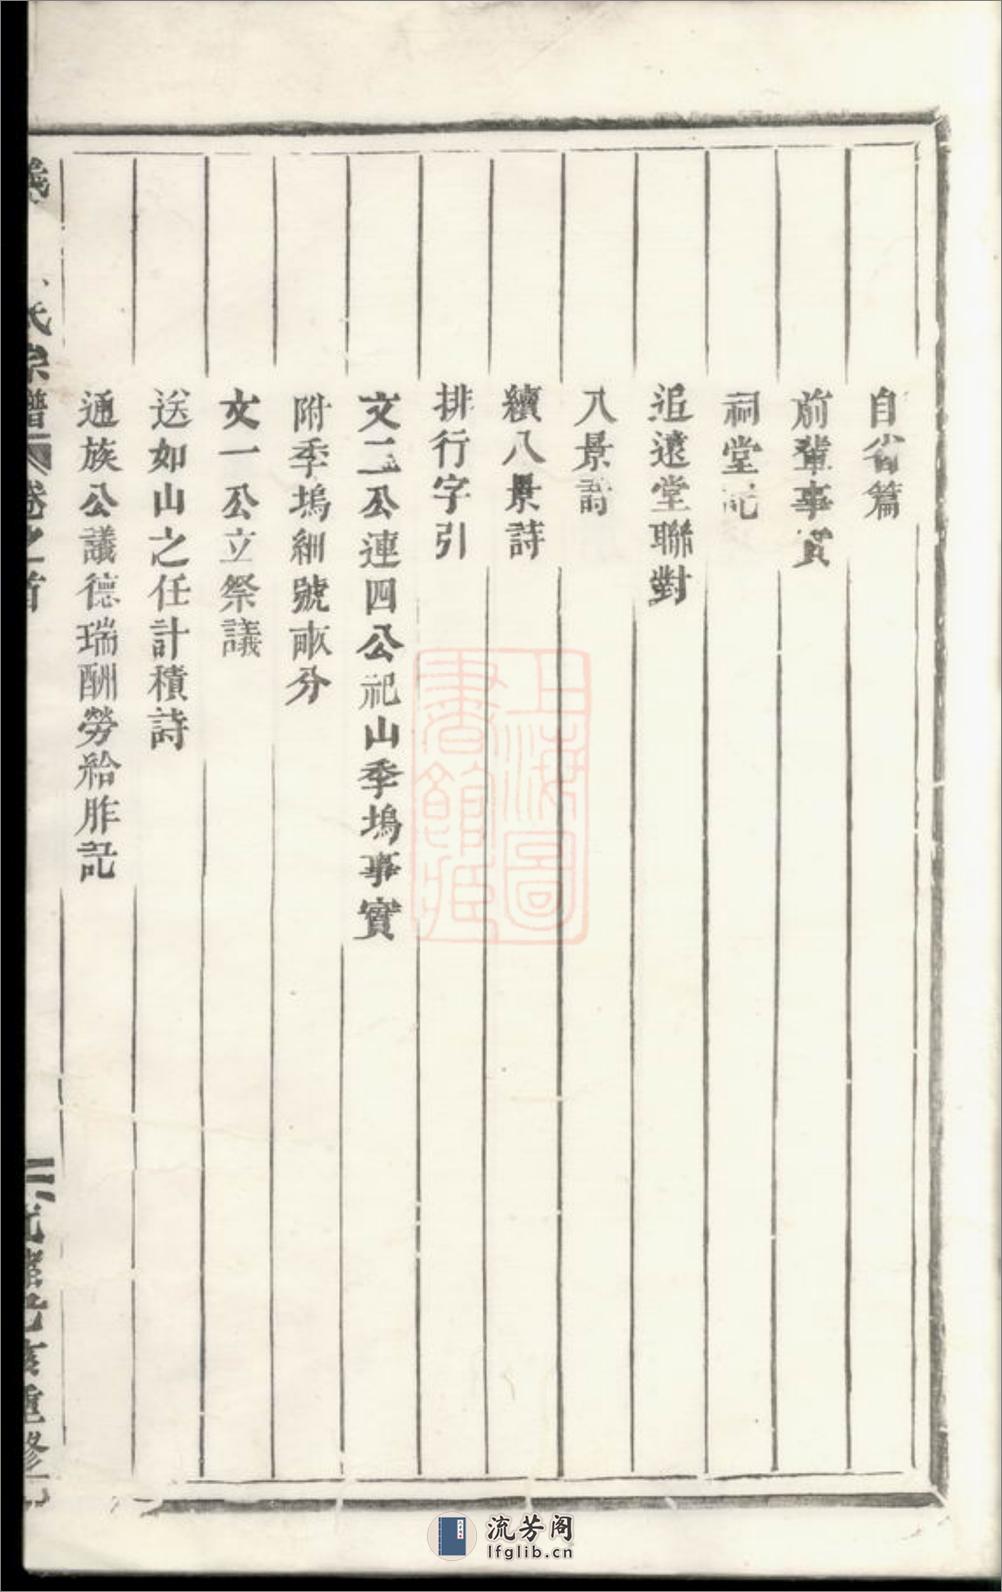 自省篇
前輩事實
祠堂記
追遠堂聯對
八景詩
續八景詩
排行字引
文二公連四公祀山季塢事實
附季塢細號畝分
文一公立祭議
送如山之任計積詩
通族公議德瑞酬勞給胙記
氏宗譜 卷之首
光緒己亥重修
上海圖書館藏
流芳阁
lfglib.cn